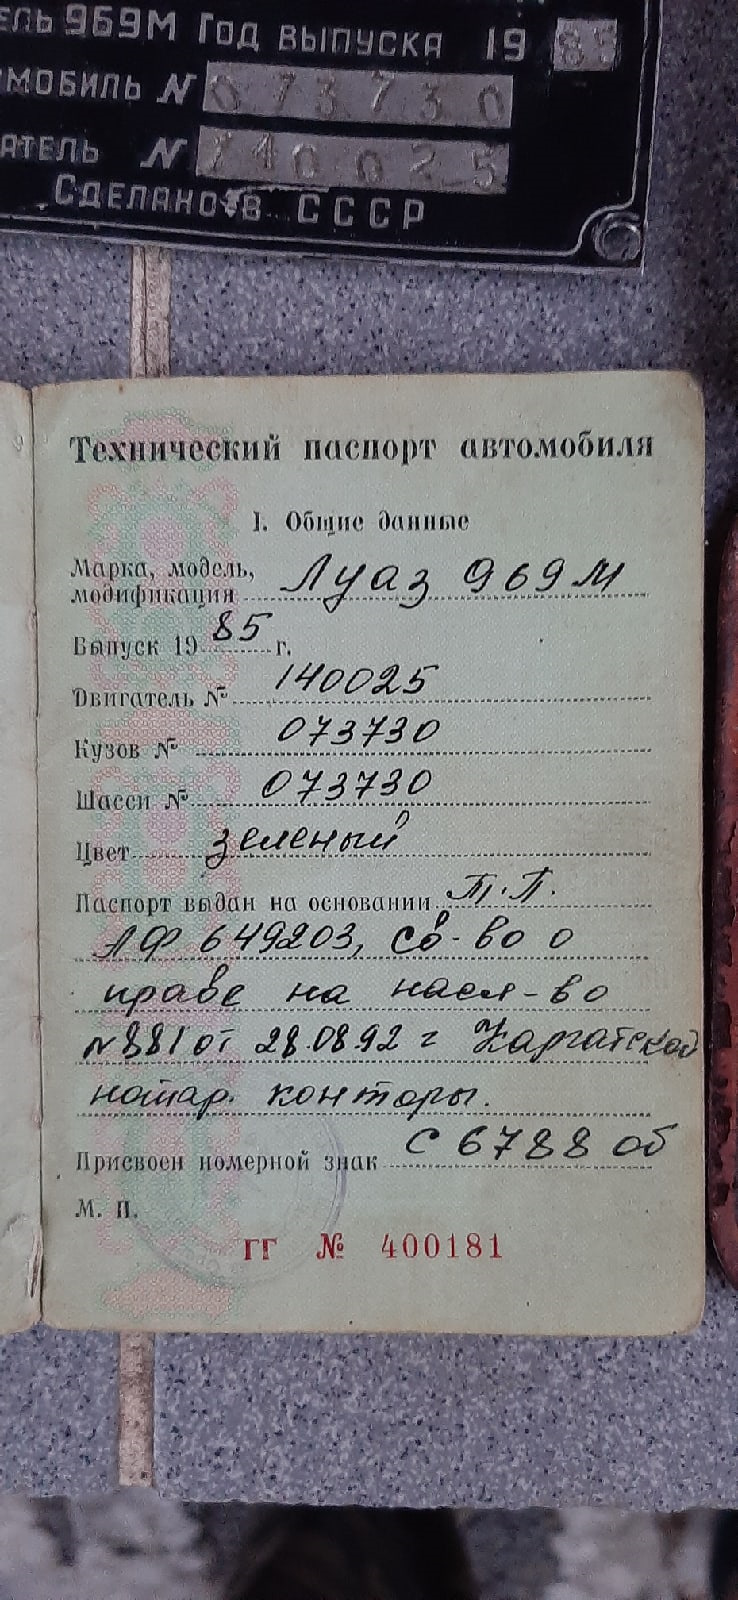 ЕЛЬ 969М ГОД ВЫПУСКА 19 85
МОБИЛЬ N 073730
АТЕЛЬ N 140025
СДЕЛАНО В СССР
Технический паспорт автомобиля
I. Общие данные
Марка, модель, Луаз 969М
модификация
Выпуск 19 85 г.
Двигатель № 140025
Кузов № 073730
Шасси № 073730
Цвет зеленый
Паспорт выдан на основании Т.П.
ЛФ 649203, св-во о
праве на насл-во
N881 от 28.08.92 г Каргатской
нотар. конторы.
Присвоен номерной знак С 6788 об
М. П.
ГГ № 400181